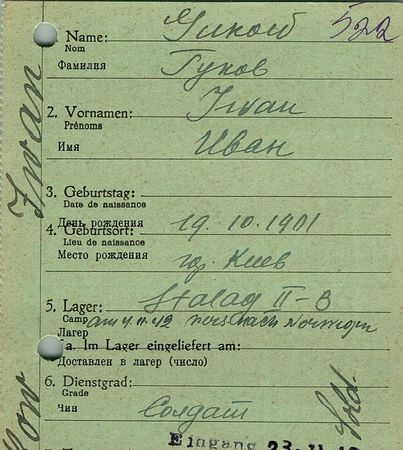 1. Name: 522
Nom
Фамилия Гуков
2. Vornamen: Iwan
Prénoms
Имя Иван
3. Geburtstag:
Date de naissance
День рождения 19.10.1901
4. Geburtsort:
Lieu de naissance
Место рождения гор. Киев
5. Lager: Stalag II-B
Camp am 4.11.42 vers. nach Norwegen
Лагер
5a. Im Lager eingeliefert am:
Доставлен в лагер (число)
6. Dienstgrad:
Grade
Чин Солдат
Sold.
Eingang 23.11.
Iwan